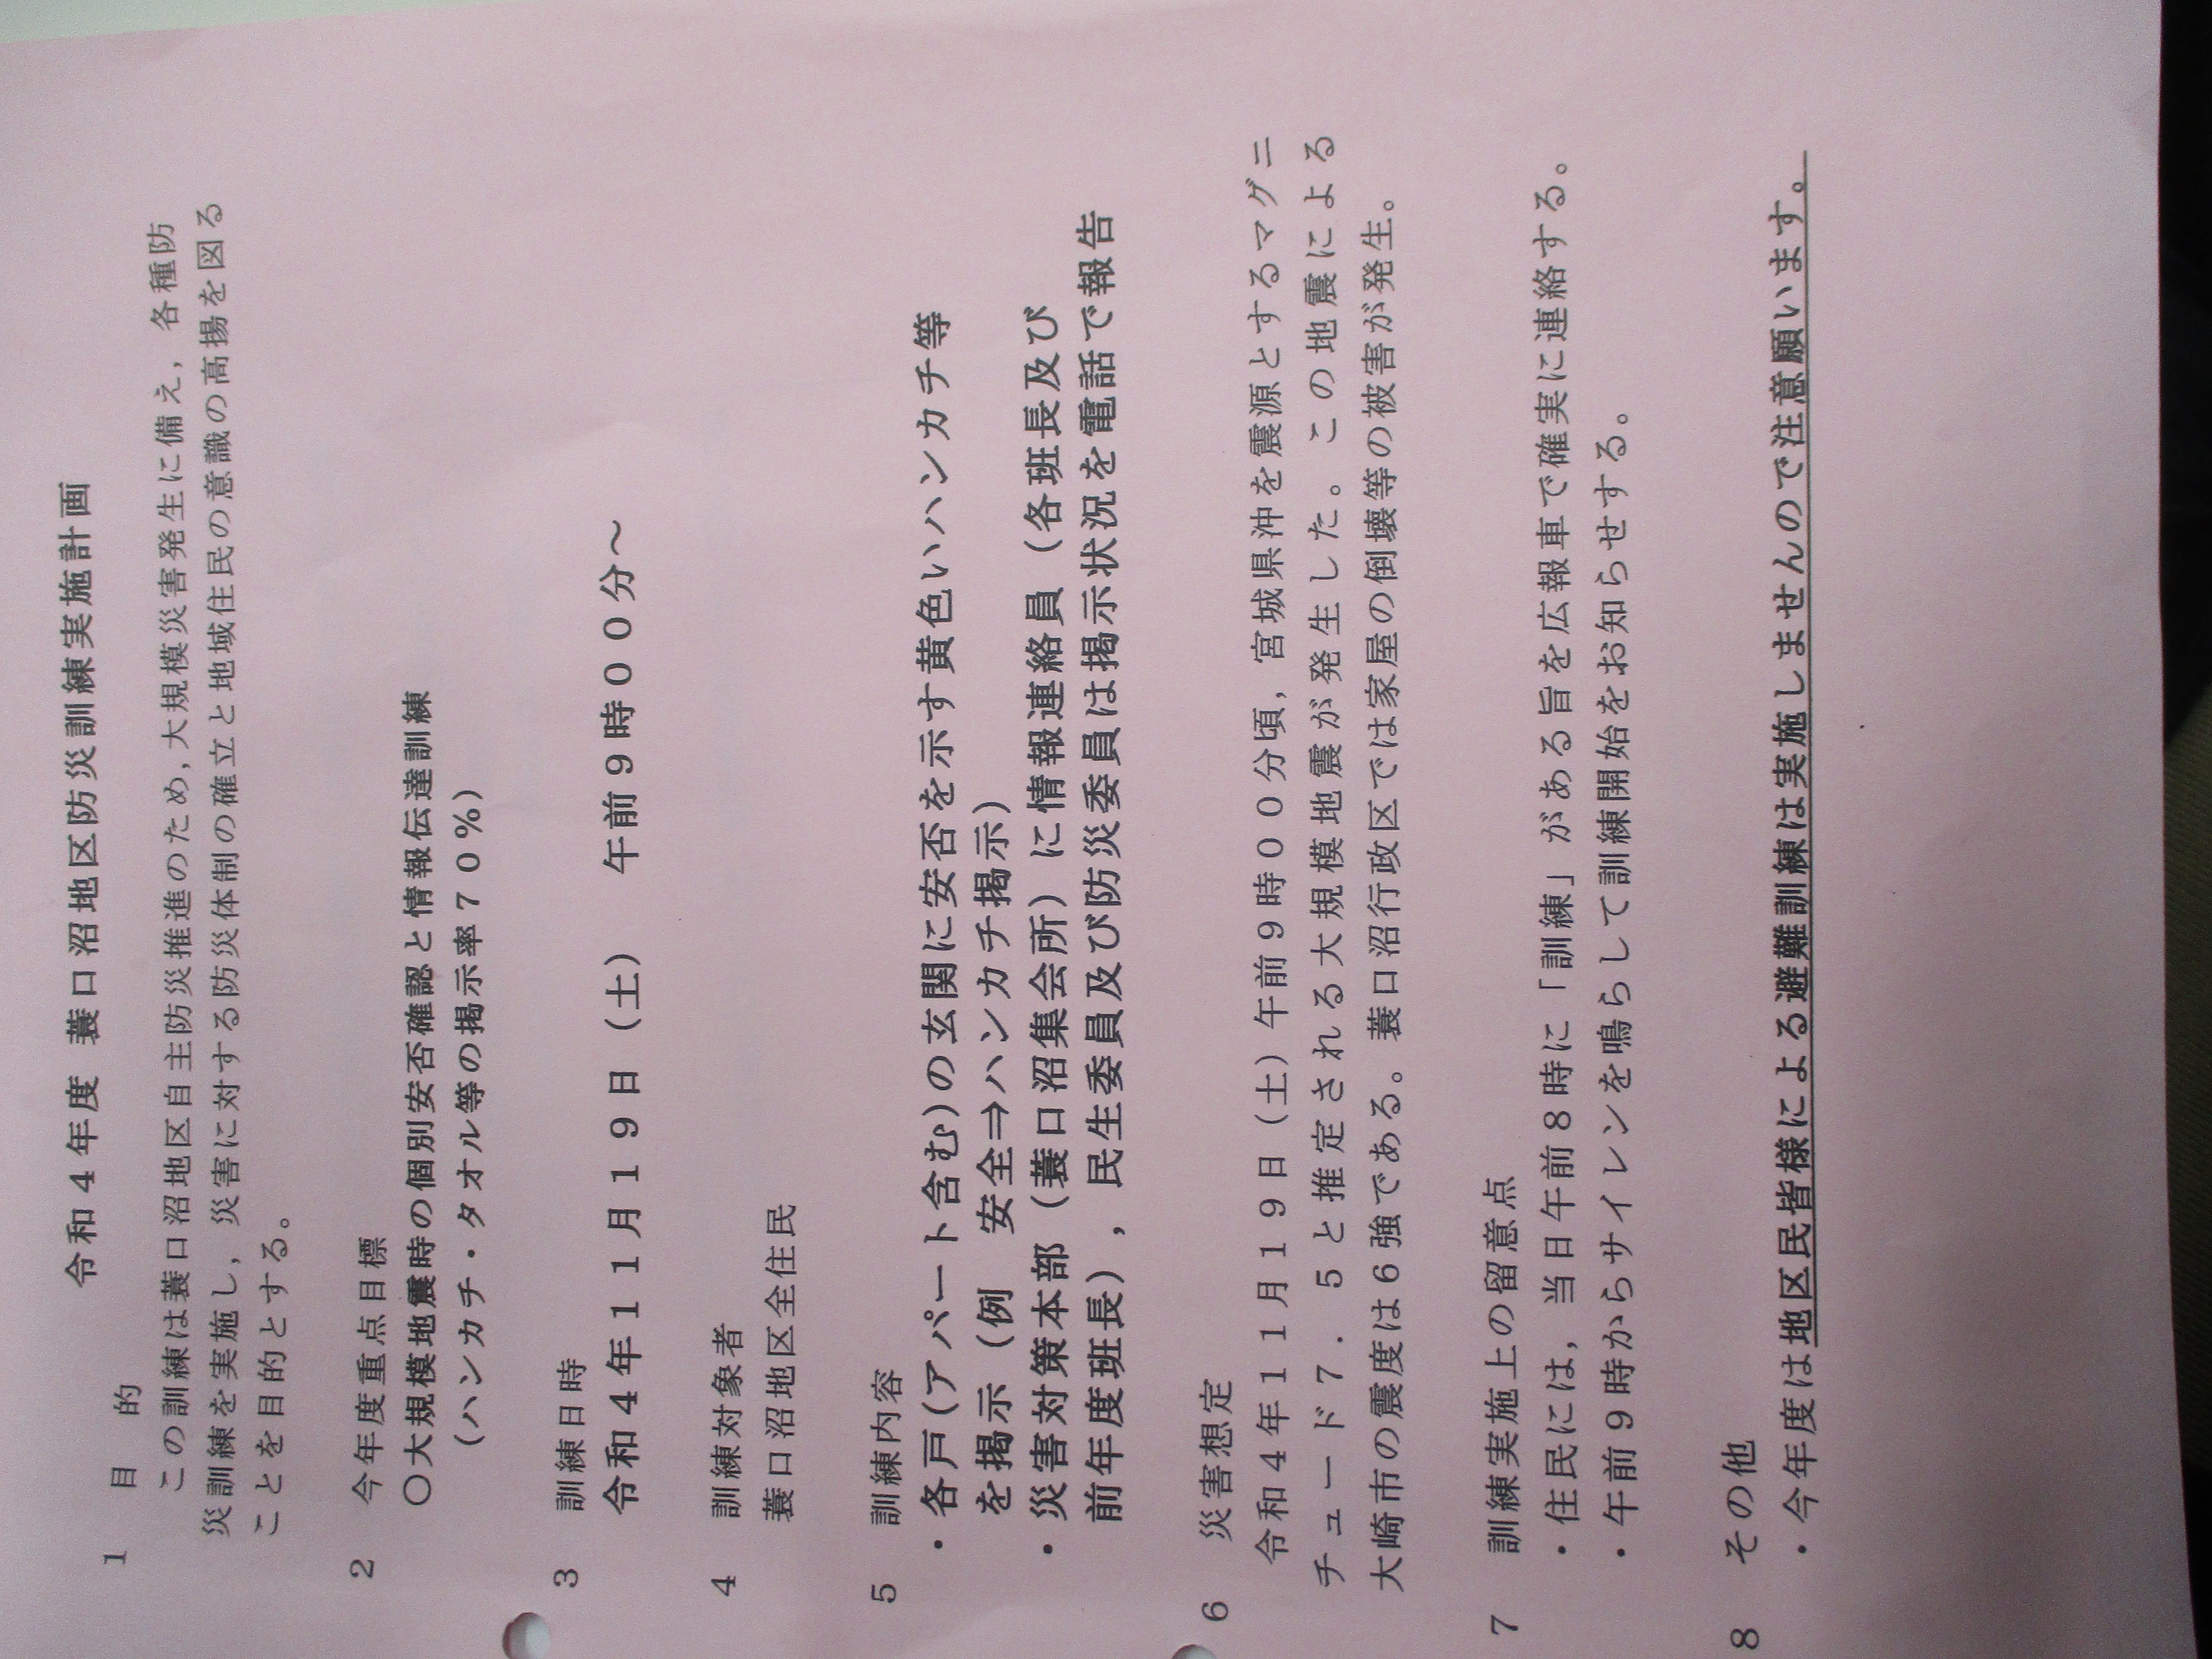 令和4年度 蓑口沼地区防災訓練実施計画
1 目 的
この訓練は蓑口沼地区自主防災推進のため,大規模災害発生に備え,各種防
災訓練を実施し,災害に対する防災体制の確立と地域住民の意識の高揚を図る
ことを目的とする。
2 今年度重点目標
〇大規模地震時の個別安否確認と情報伝達訓練
(ハンカチ・タオル等の掲示率70%)
3 訓練日時
令和4年11月19日(土) 午前9時00分~
4 訓練対象者
蓑口沼地区全住民
5 訓練内容
・各戸(アパート含む)の玄関に安否を示す黄色いハンカチ等
を掲示(例 安全⇒ハンカチ掲示)
・災害対策本部(蓑口沼集会所)に情報連絡員(各班長及び
前年度班長),民生委員及び防災委員は掲示状況を電話で報告
6 災害想定
令和4年11月19日(土)午前9時00分頃,宮城県沖を震源とするマグニ
チュード7.5と推定される大規模地震が発生した。この地震による
大崎市の震度は6強である。蓑口沼行政区では家屋の倒壊等の被害が発生。
7 訓練実施上の留意点
・住民には,当日午前8時に「訓練」がある旨を広報車で確実に連絡する。
・午前9時からサイレンを鳴らして訓練開始をお知らせする。
8 その他
・今年度は地区民皆様による避難訓練は実施しませんので注意願います。